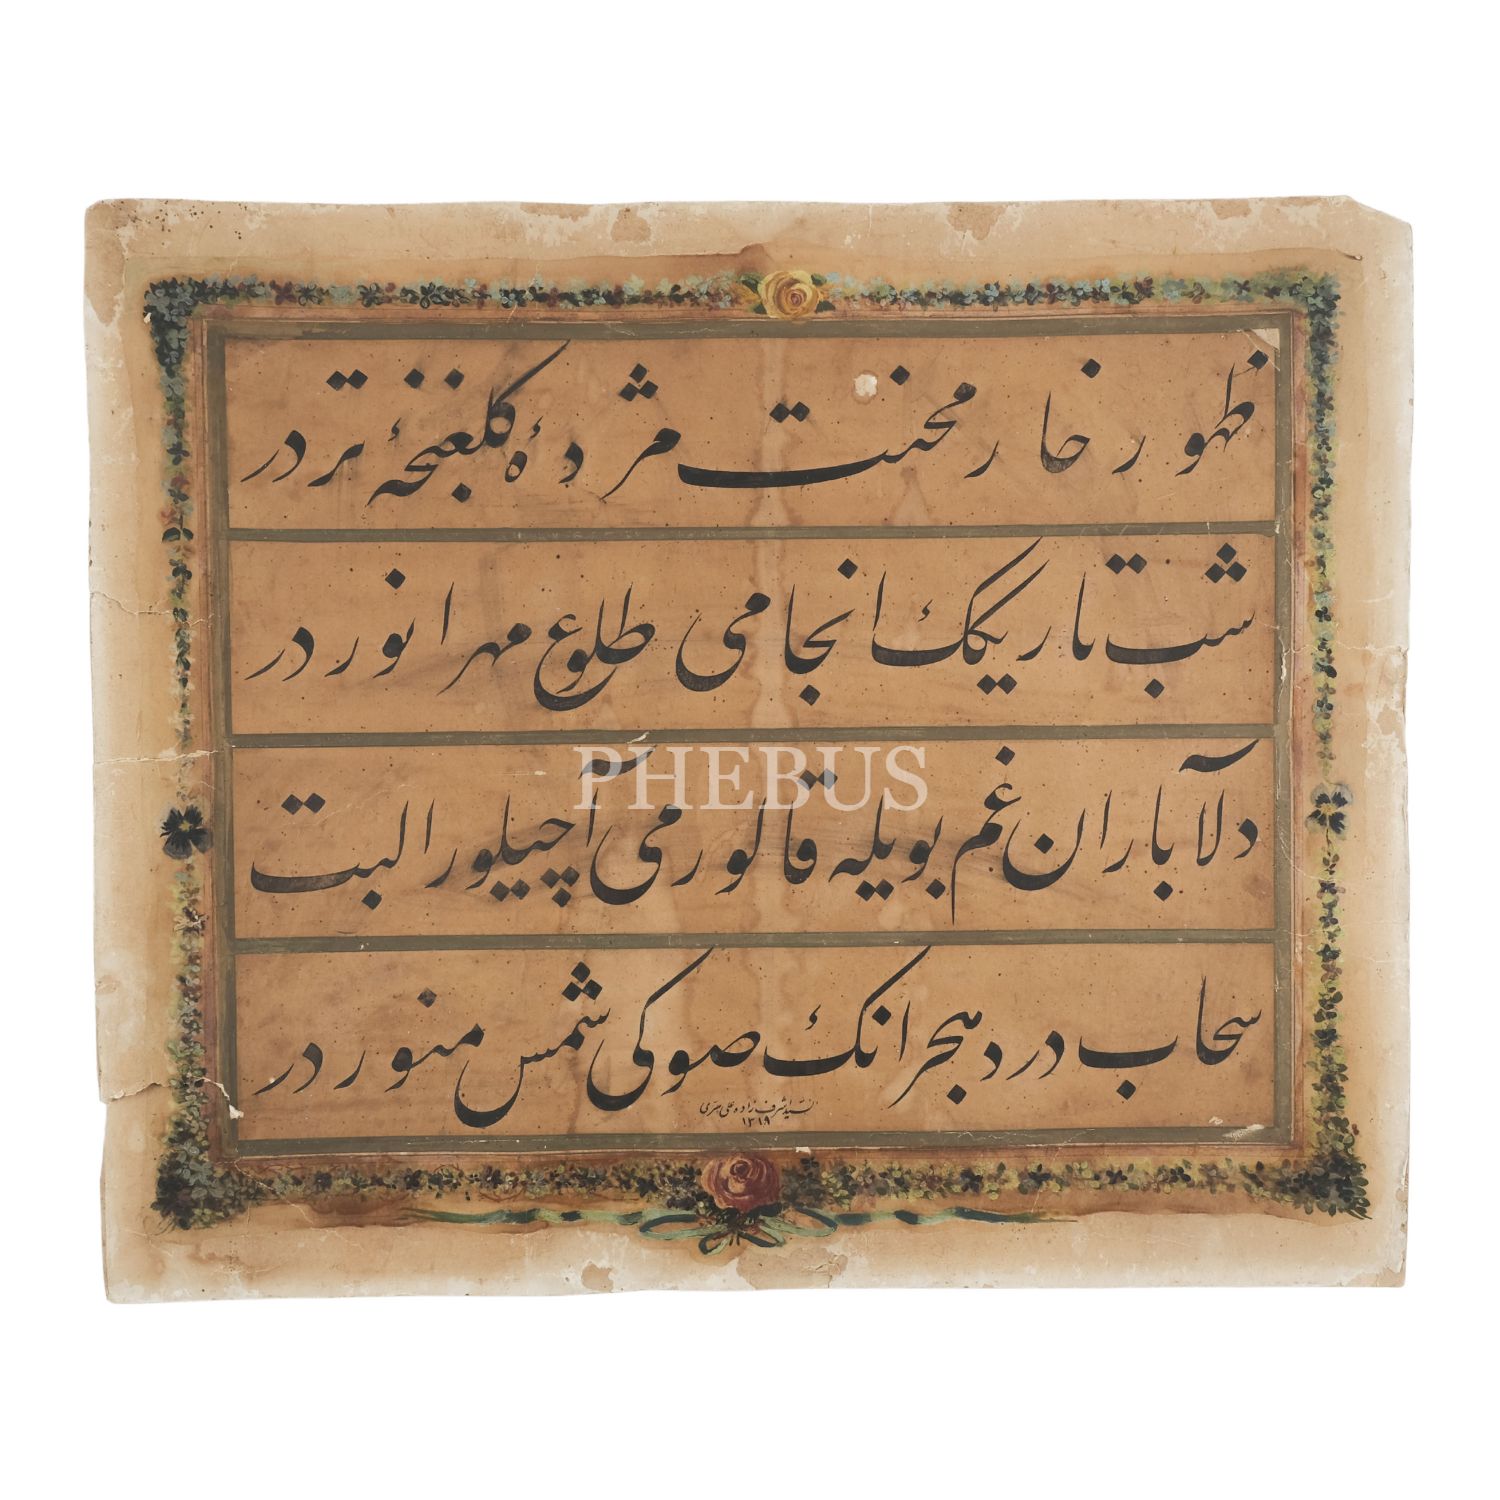 ظهور خار محنت مژدهٔ کلغنچهٔ تردر
شب تاریک انجامی طلوع مهر انوردر
PHEBUS
دلا باران غم بویله قالورمی آچیلور البت
سحاب درد هجرانک صوکی شمس منوردر
السید اشرف زاده علی سری
١٣١٩